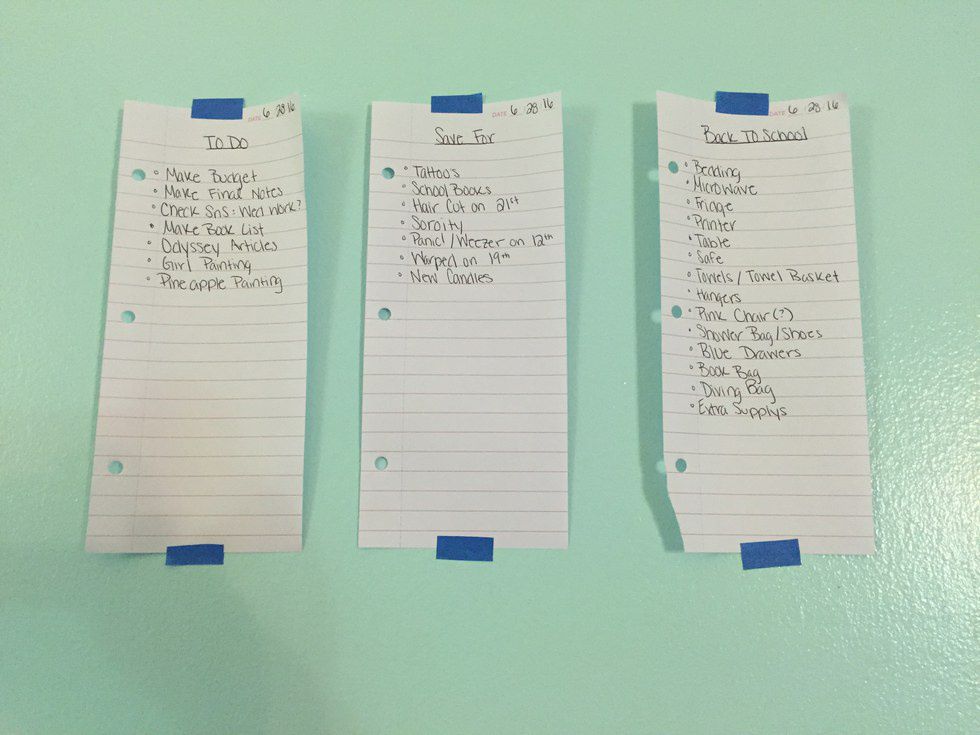 DATE 6 28 16
TO DO
• Make Budget
• Make Final Notes
• Check SnS: Wed Work?
• Make Book List
• Odyssey Articles
• Girl Painting
• Pineapple Painting
DATE 6 28 16
Save For
• Tattoo's
• School Books
• Hair Cut on 21st
• Sorority
• Panic!/Weezer on 12th
• Warped on 19th
• New Candles
DATE 6 28 16
Back To School
• Bedding
• Microwave
• Fridge
• Printer
• Table
• Safe
• Towels/Towel Basket
• Hangers
• Pink Chair(?)
• Shower Bag/Shoes
• Blue Drawers
• Book Bag
• Diving Bag
• Extra Supplys